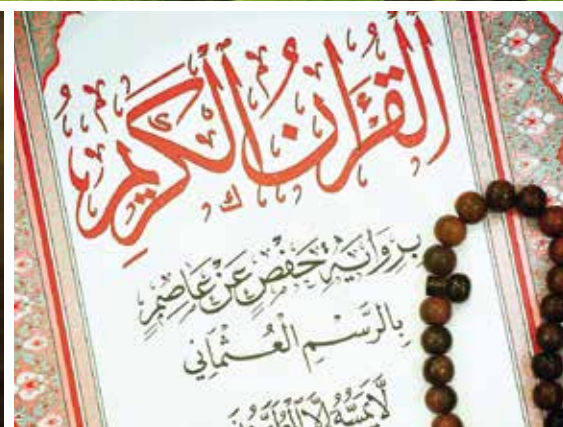 القُرْآنُ الْكَرِيمُ
بِرِوَايَةِ حَفْصٍ عَنْ عَاصِمٍ
بِالرَّسْمِ الْعُثْمَانِي
لَّا يَمَسُّهُ إِلَّا الْمُطَهَّرُونَ